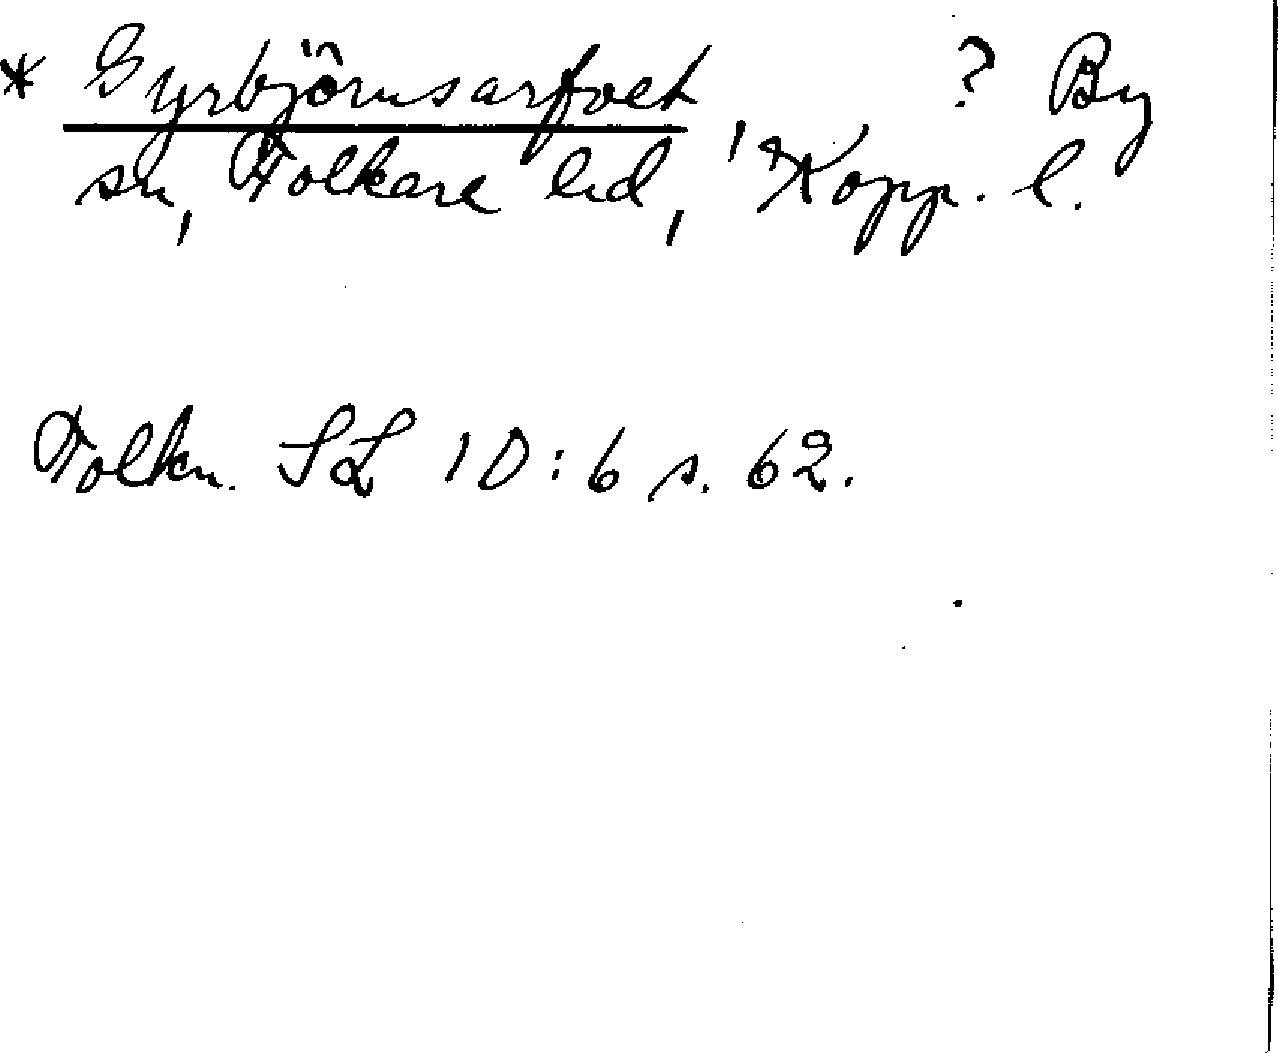 * Gyrbjörnsarfvet, ? By
sn, Folkare hd, Kopp. l.
Folkn. SL 1 D:6 s. 62.